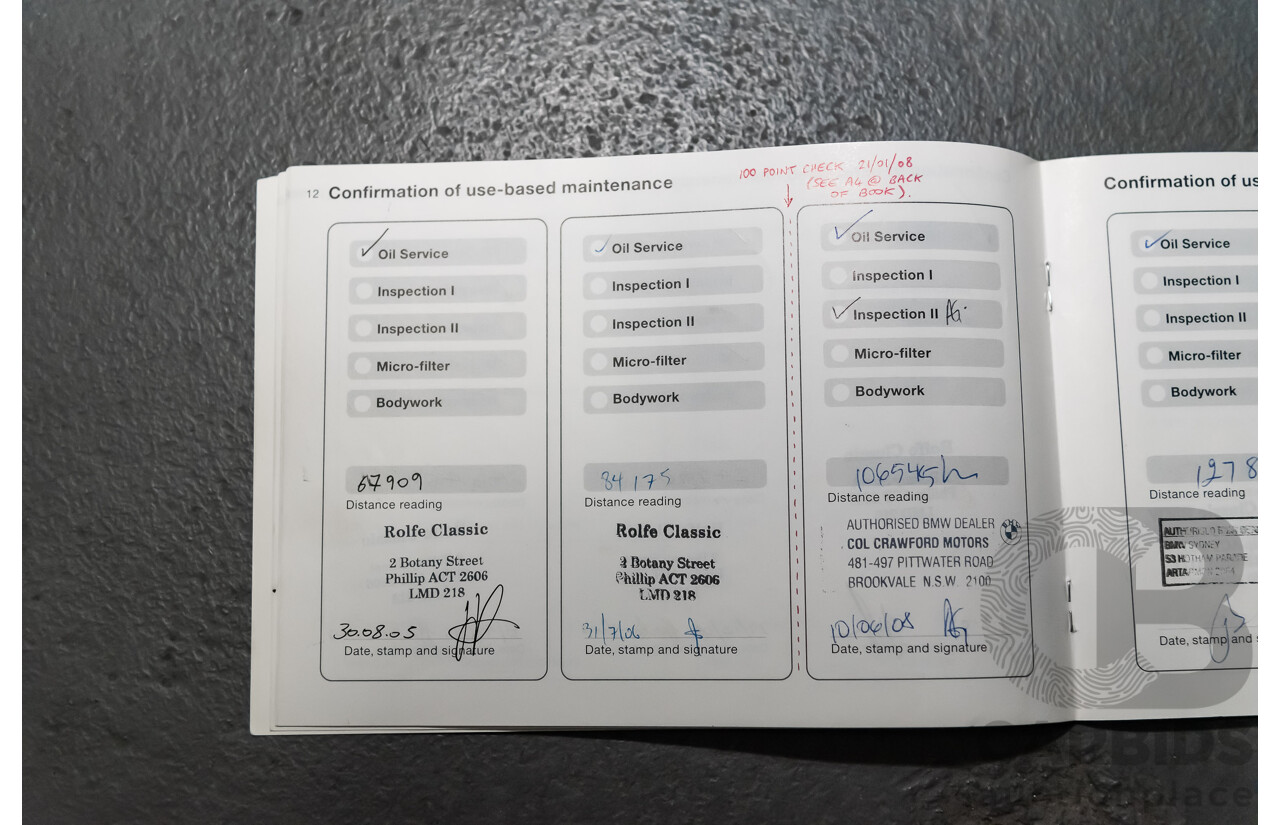 100 POINT CHECK 21/01/08
(SEE A4 @ BACK
OF BOOK).
12 Confirmation of use-based maintenance
Oil Service
Inspection I
Inspection II
Micro-filter
Bodywork
67909
Distance reading
Rolfe Classic
2 Botany Street
Phillip ACT 2606
LMD 218
30.08.05
Date, stamp and signature
Oil Service
Inspection I
Inspection II
Micro-filter
Bodywork
84175
Distance reading
Rolfe Classic
2 Botany Street
Phillip ACT 2606
LMD 218
31/7/06
Date, stamp and signature
Oil Service
Inspection I
Inspection II
Micro-filter
Bodywork
106545
Distance reading
AUTHORISED BMW DEALER
COL CRAWFORD MOTORS
481-497 PITTWATER ROAD
BROOKVALE N.S.W. 2100
10/06/08
Date, stamp and signature
Confirmation of us
Oil Service
Inspection I
Inspection II
Micro-filter
Bodywork
1278
Distance reading
BMW SYDNEY
53 HOTHAM PARADE
Date, stamp and s
CARBIDS